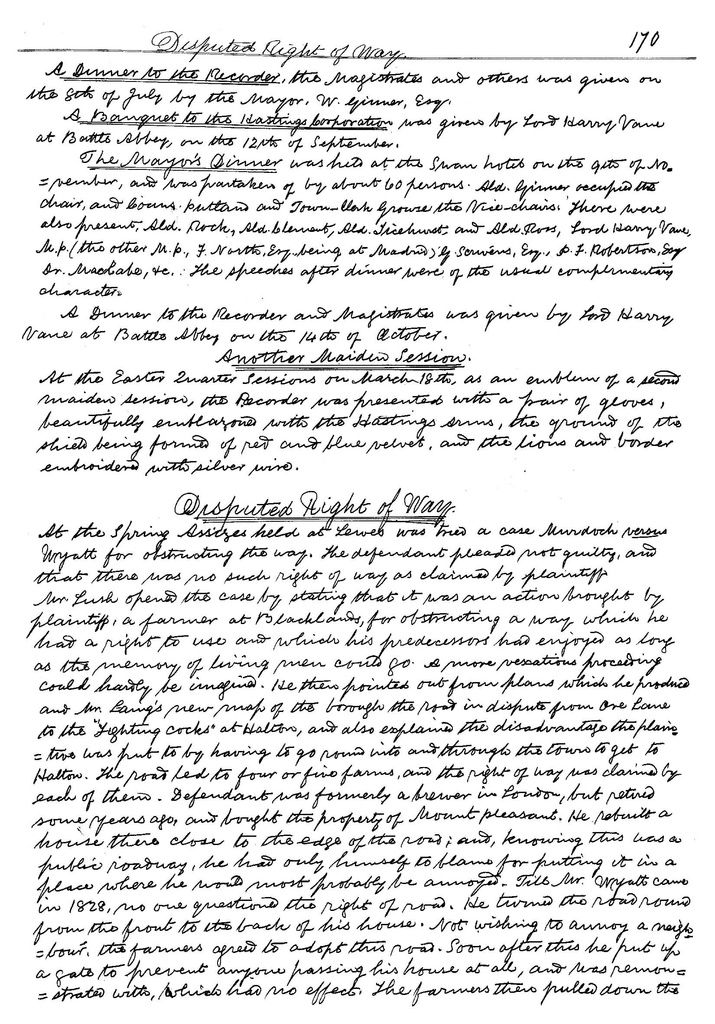 Disputed Right of Way. 170
A Dinner to the Recorder, the Magistrates and others was given on
the 8th of July by the Mayor. W. Ginner, Esq.
A Banquet to the Hastings Corporation was given by Lord Harry Vane
at Battle Abbey, on the 12th of September.
The Mayor's Dinner was held at the Swan hotel on the 9th of No=
=vember, and was partaken of by about 60 persons. Ald. Ginner occupied the
chair, and Couns. Putland and Town-Clerk Growse the Vice-chairs. There were
also present, Ald. Rock, Ald. Clement, Ald. Ticehurst, and Ald Ross, Lord Harry Vane,
M.p. (the other M.p., F. North, Esq. being at Madrid) G. Scrivens, Esq., D. F. Robertson, Esq
Dr. MacCabe, &c. The speeches after dinner were of the usual complimentary
character.
A Dinner to the Recorder and Magistrates was given by Lord Harry
Vane at Battle Abbey on the 14th of October.
Another Maiden Session.
At the Easter Quarter Sessions on March 18th, as an emblem of a second
maiden session, the Recorder was presented with a pair of gloves,
beautifully emblazoned with the Hastings arms, the ground of the
shield being formed of red and blue velvet, and the lions and border
embroidered with silver wire.
Disputed Right of Way.
At the Spring Assizes held at Lewes was tried a case Murdoch versus
Wyatt for obstructing the way. The defendant pleaded not guilty, and
that there was no such right of way as claimed by plaintiff
Mr. Lush opened the case by stating that it was an action brought by
plaintiff, a farmer at Blacklands, for obstructing a way which he
had a right to use and which his predecessors had enjoyed as long
as the memory of living men could go. A more vexatious proceeding
could hardly be imagined. He then pointed out from plans which he produced
and Mr. Laing's new map of the borough the road in dispute from Ore Lane
to the "Fighting Cocks" at Halton, and also explained the disadvantage the plain=
=tive was put to by having to go round into and through the town to get to
Halton. The road led to four or five farms, and the right of way was claimed by
each of them. Defendant was formerly a brewer in London, but retired
some years ago, and bought the property of Mount pleasant. He rebuilt a
house there close to the edge of the road; and, knowing this was a
public roadway, he had only himself to blame for putting it in a
place where he would most probably be annoyed. Till Mr. Wyatt came
in 1828, no one questioned the right of road. He turned the road round
from the front to the back of his house. Not wishing to annoy a neigh=
=bour, the farmers agreed to adopt this road. Soon after this he put up
a gate to prevent anyone passing his house at all, and was remon=
=strated with, which had no effect. The farmers then pulled down the